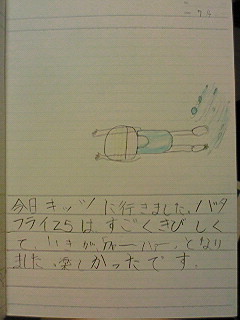 今日キッズに行きました。バタ
フライ25はすごくきびしく
て、いきがハーハー、となり
ました。楽しかったです。